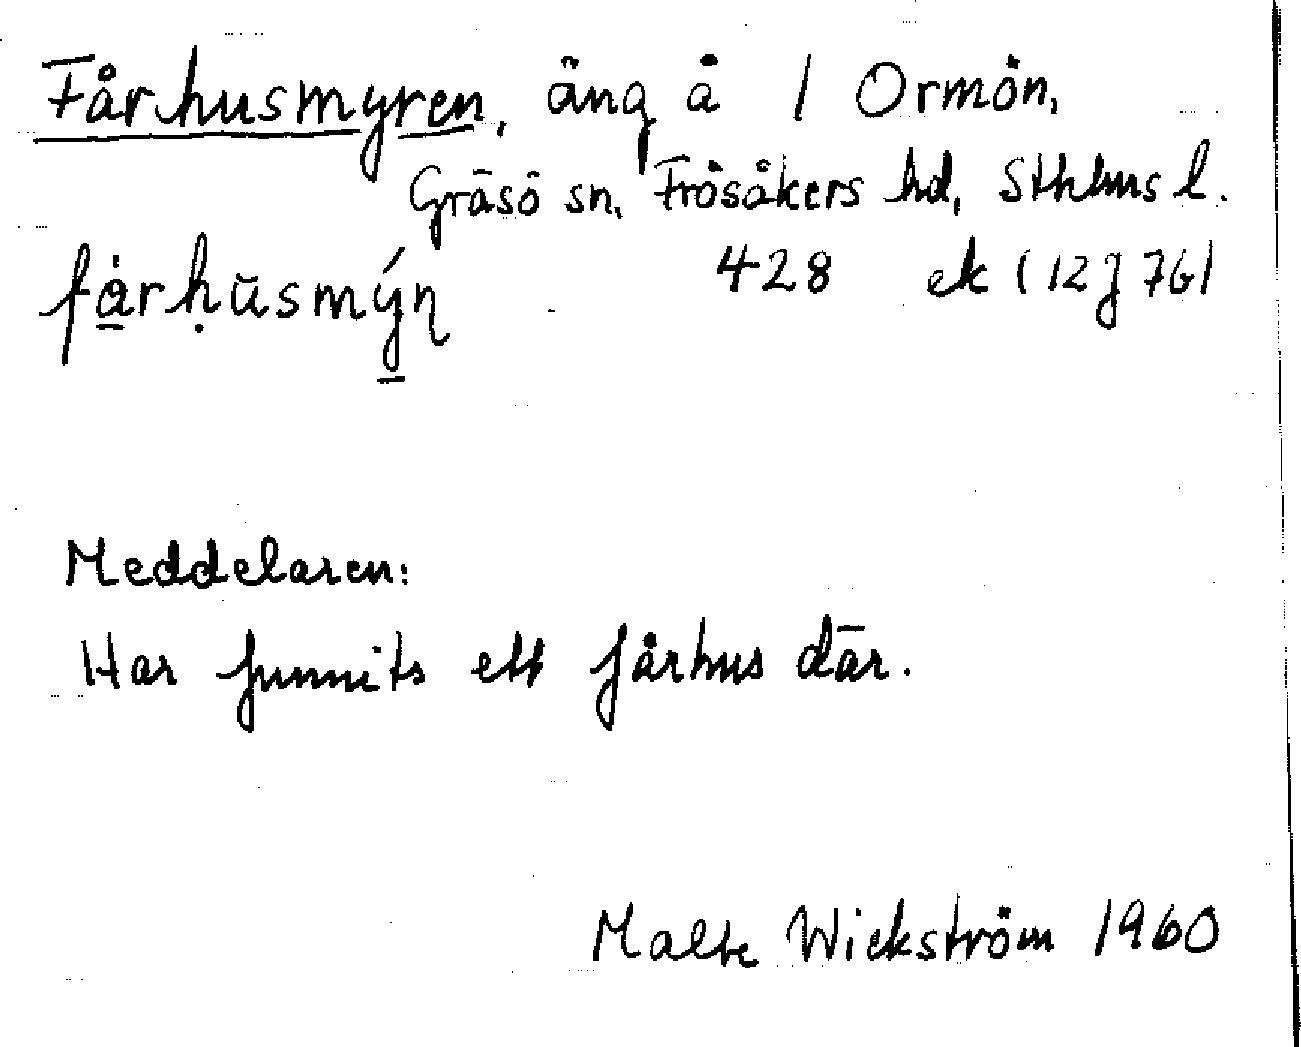 Fårhusmyren, äng å 1 Ormön,
Gräsö sn, Frösåkers hd, Sthlms l.
fårhusmýn 428 ek (12J76)
Meddelaren:
Har funnits ett fårhus där.
Malte Wickström 1960